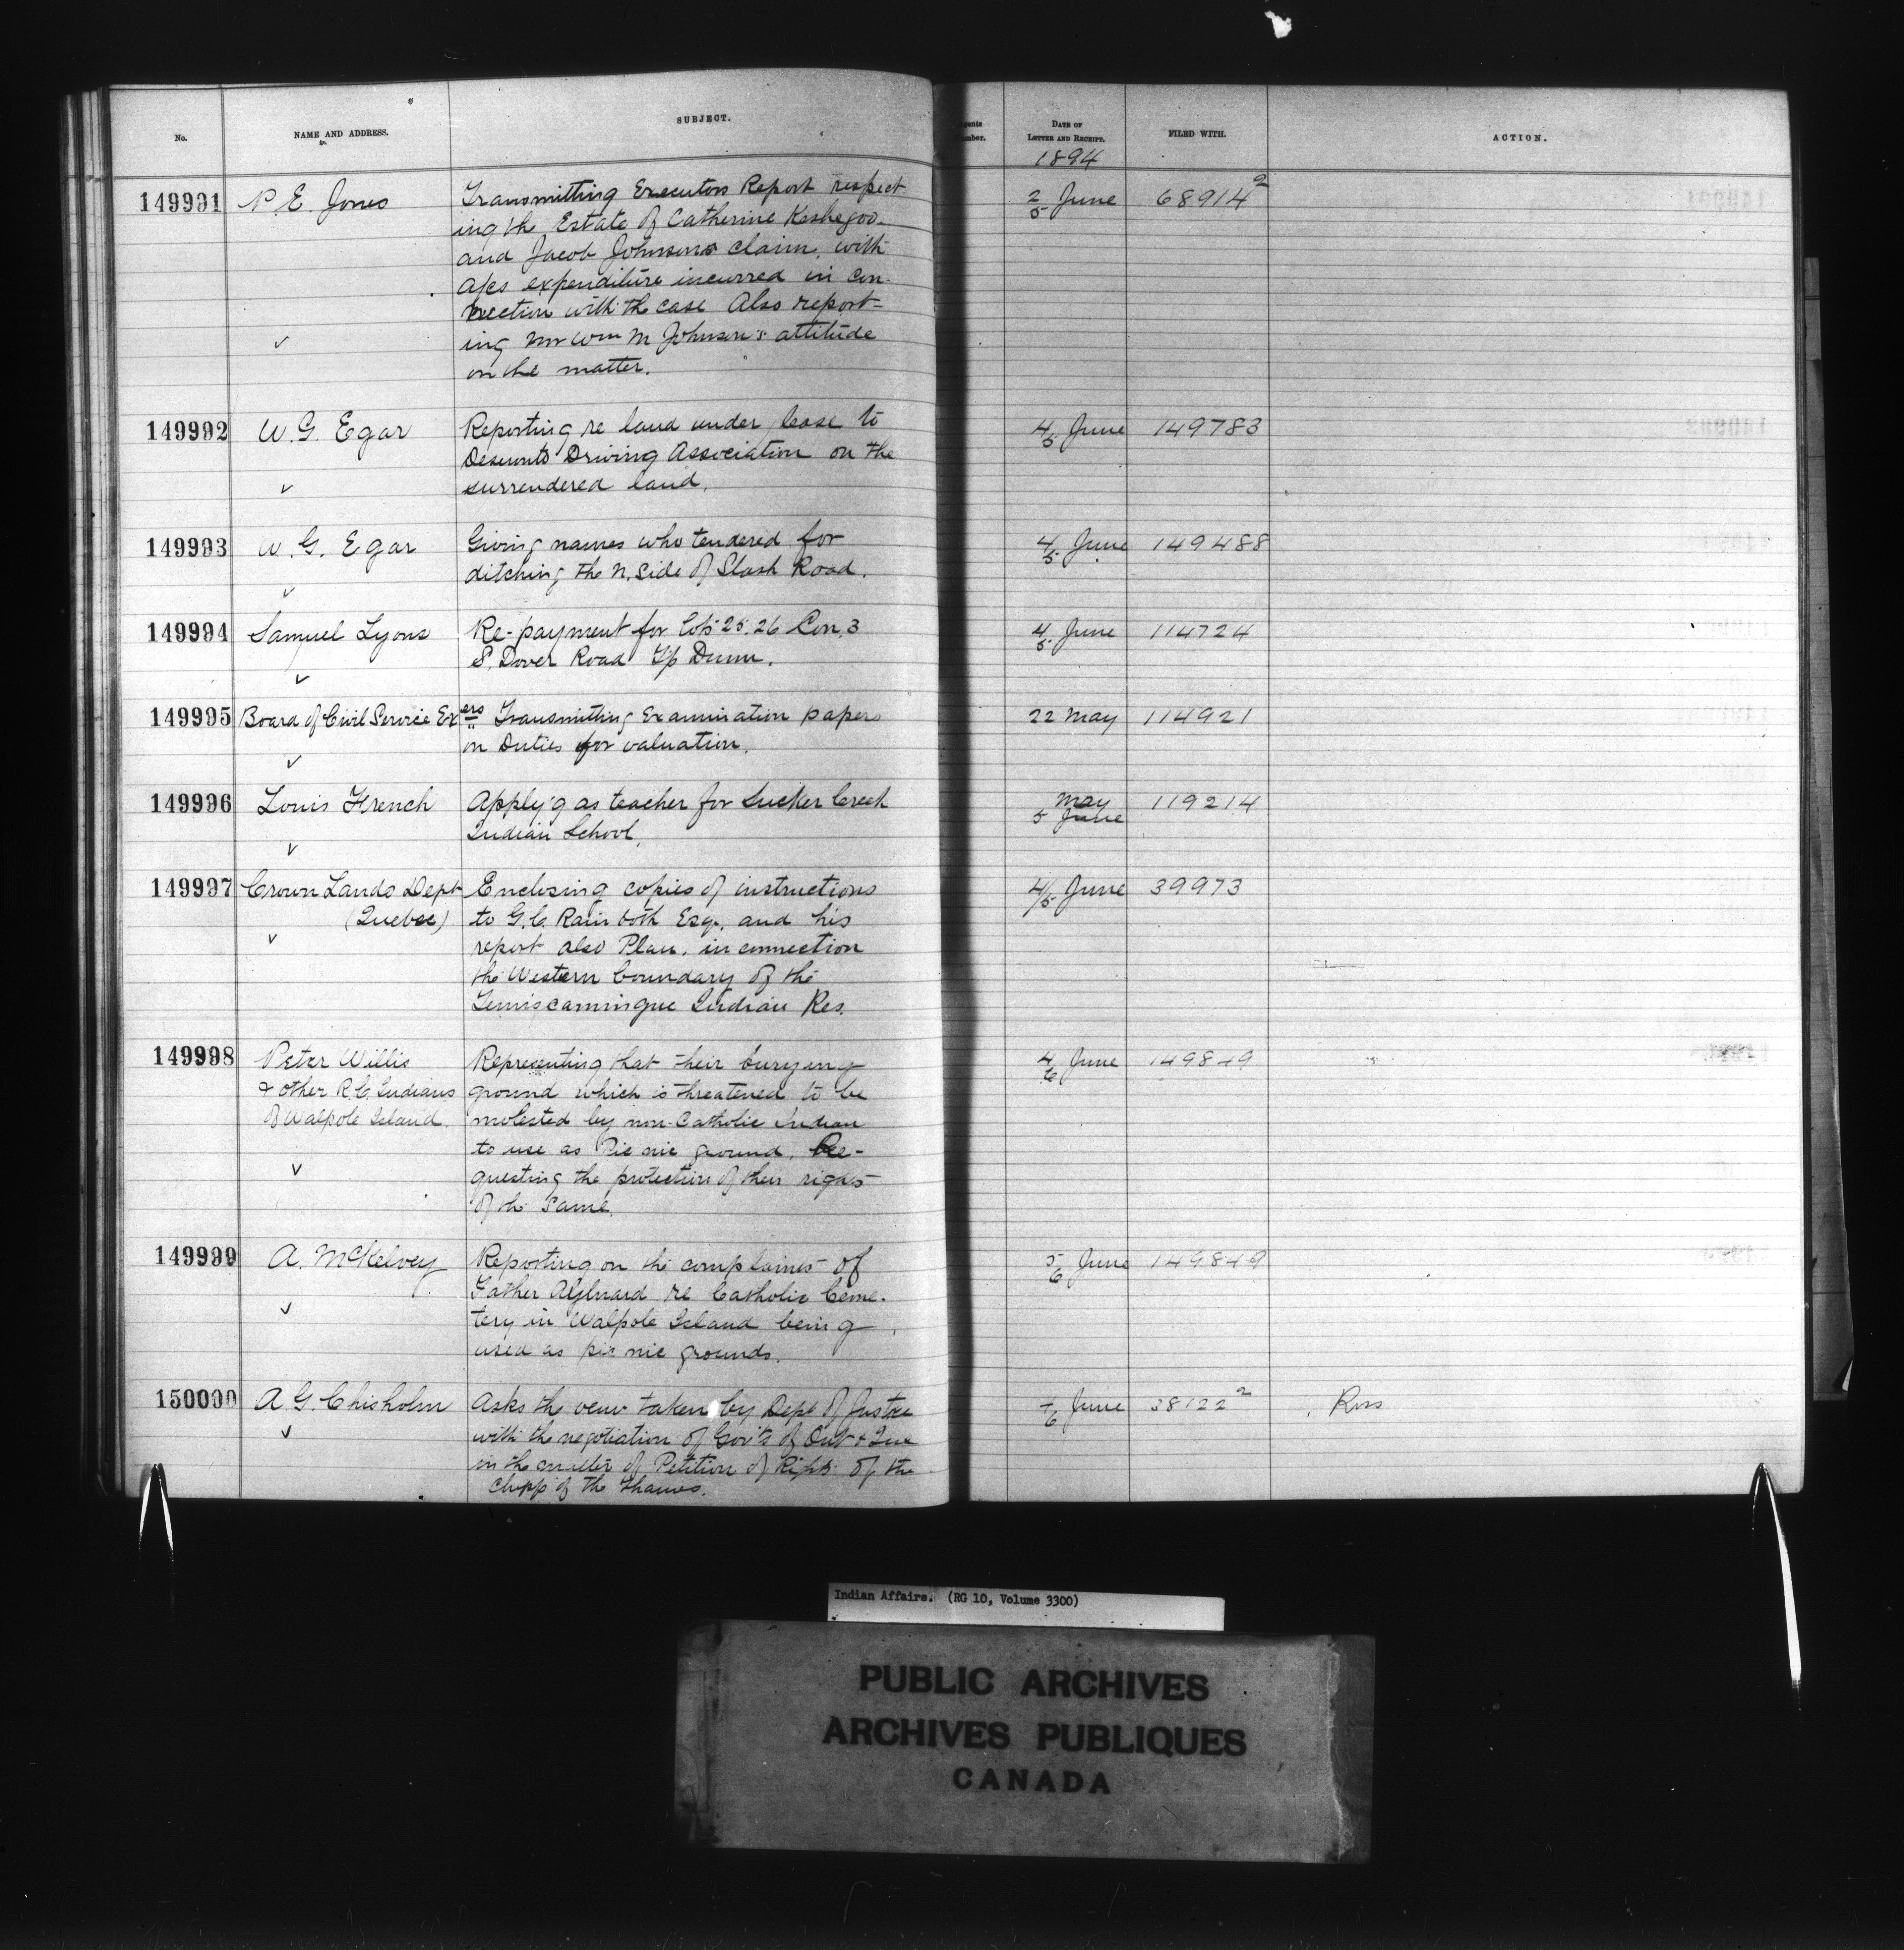 No. NAME AND ADDRESS. SUBJECT. Agents Number. DATE OF LETTER AND RECEIPT. FILED WITH. ACTION.
1894
149991 P. E. Jones Transmitting Executors Report respect- 2/5 June 68914²
ing the Estate of Catherine Keshegoo.
and Jacob Johnsons claim, with
a/cs expenditure incurred in con-
nection with the case Also report-
ing Mr Wm M Johnson's attitude
on the matter.
149992 W. G. Egar Reporting re land under lease to 4/5 June 149783
Deseronto Driving Association on the
surrendered land.
149993 W. G. Egar Giving names who tendered for 4/5 June 149488
ditching the N. Side of Slash Road.
149994 Samuel Lyons Re-payment for lots 25. 26 Con. 3 4/5 June 114724
S. Dover Road Tp Dunn.
149995 Board of Civil Service Exers Transmitting Examination papers 22 May 114921
on Duties for valuation.
149996 Louis French Apply'g as teacher for Sucker Creek May 119214
Indian School. 5 June
149997 Crown Lands Dept Enclosing copies of instructions 4/5 June 39973
(Quebec) to G. C. Rainboth Esq. and his
report also Plan, in connection
the Western boundary of the
Temiscamingue Indian Res.
149998 Peter Willis Representing that their burying 4/6 June 149849
& other R. C. Indians ground which is threatened to be
of Walpole Island. molested by non-Catholic Indian
to use as Pic nic ground. Re-
questing the protection of their rights
of the same.
149999 A. McKelvey Reporting on the complaints of 5/6 June 149849
Father re Catholic Ceme-
tery in Walpole Island being
used as pic nic grounds.
150000 A. G. Chisholm Asks the view taken by Dept of Justice /6 June 38122² Ross
with the negotiation of Gov'ts of Ont & Que
in the matter of Petition of Right of the
Chipp of the Thames.
Indian Affairs. (RG 10, Volume 3300)
PUBLIC ARCHIVES
ARCHIVES PUBLIQUES
CANADA